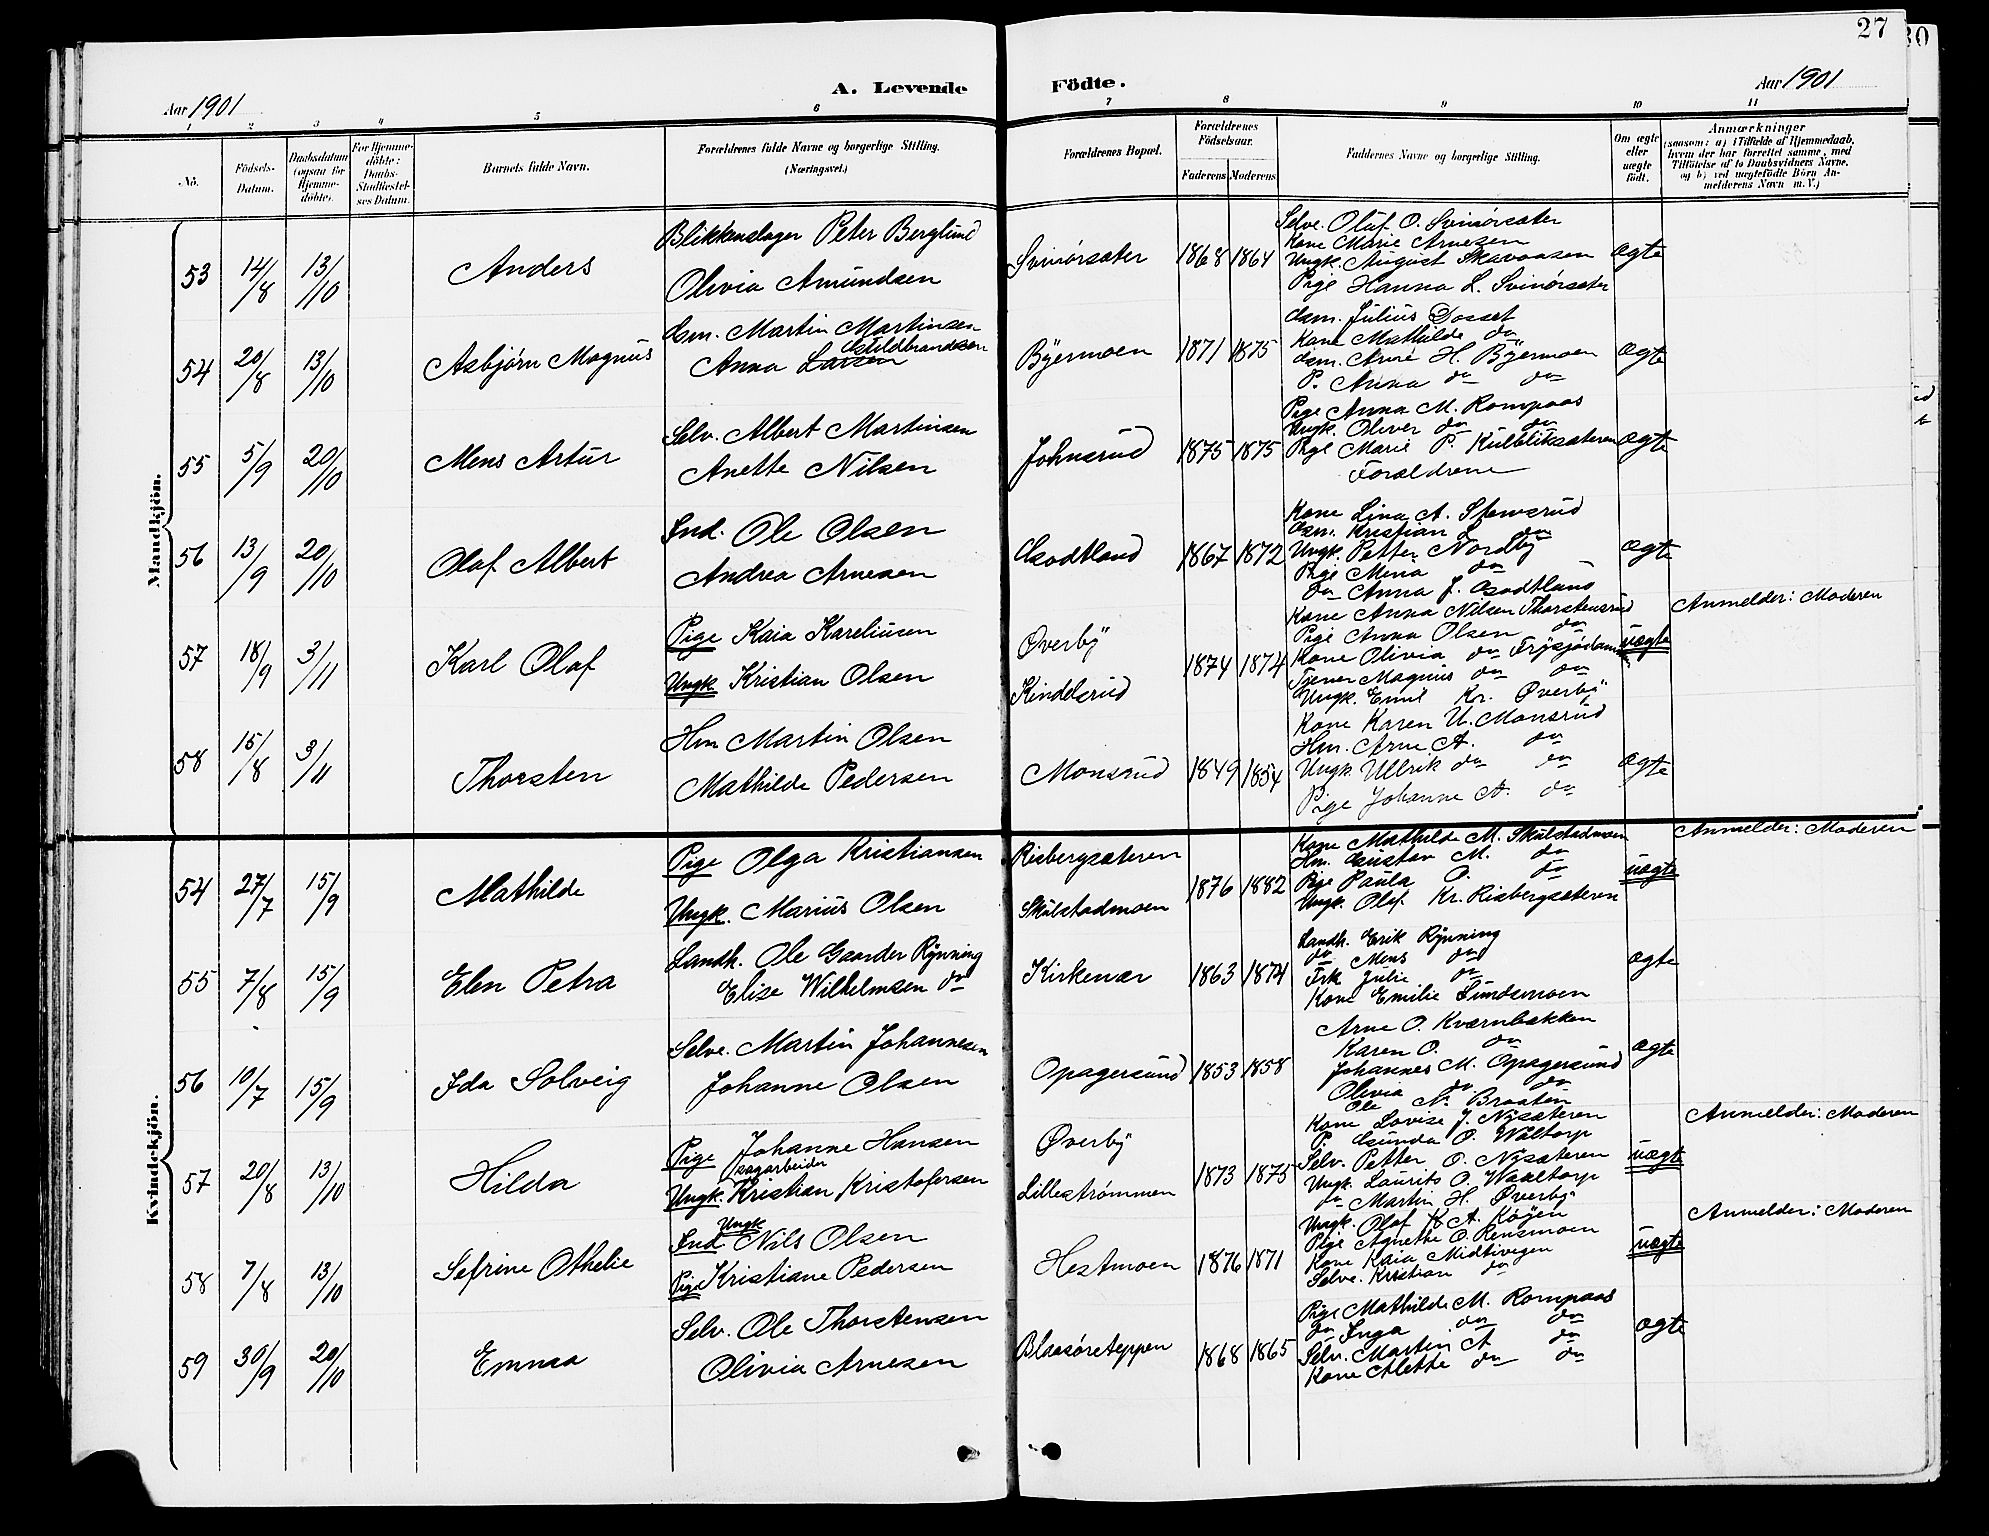 27
30
Aar 1901
A. Levende Födte.
Aar 1901
1 2 3 4 5 6 7 8 9 10 11
No.
Födsels-Datum.
Daabsdatum (ogsaa for Hjemmedöbte).
For Hjemmedöbte: Daabs-Stadfæstelses Datum.
Barnets fulde Navn.
Forældrenes fulde Navne og borgerlige Stilling. (Næringsvei.)
Forældrenes Bopæl.
Forældrenes Födselsaar.
Faderens Moderens
Faddernes Navne og borgerlige Stilling.
Om ægte eller uægte födt.
Anmærkninger
(saasom: a) i Tilfælde af Hjemmedaab, hvem der har forrettet samme, med Tilföielse af to Daabsvidners Navne, og b) ved uægtefödte Börn Anmelderens Navn m. V.)
Mandkjön.
53 14/8 13/10 Anders
Blikkenslager Peter Berglund
Olivia Amundsen
Svinørsæter 1868 1864
Selve. Olaf O. Svinørsæter
Kone Marie Arnesen
Ungk. August Skavaasen
Pige Hanna L. Svinørsæter
ægte
54 20/8 13/10 Asbjørn Magnus
Gsm. Martin Martinsen
Anna Larsen Gulbrandsen
Byermoen 1871 1875
Gsm. Julius Dosset
Kone Mathilde do
Gsm. Arne H. Byermoen
P. Anna do do
ægte
55 5/9 20/10 Mens Artur
Selv. Albert Martinsen
Anette Nilsen
Johnsrud 1875 1875
Pige Anna M. Rompaas
Ungk. Oliver do do
Pige Marie P. Kulbliksæteren
Forældrene
ægte
56 13/9 20/10 Olaf Albert
Ind. Ole Olsen
Andrea Arnesen
Godtland 1867 1872
Kone Lina A. Stensrud
Gsm. Kristian L. do
Ungk. Petter Nordby
Pige Mina do
do Anna J. Godtland
ægte
57 18/9 3/11 Karl Olaf
Pige Kaia Kareliusen
Ungk Kristian Olsen
Øverby
Kindelsrud
1874 1874
Kone Anna Nilsen Thorstensrud
Pige Anna Olsen do
Kone Olivia do Frysjødammen
Tjener Magnus do do
Ungk. Emil Kr. Øverby
uægte
Anmelder: Moderen
58 15/8 3/11 Thorsten
Hm Martin Olsen
Mathilde Pedersen
Monsrud 1849 1854
Kone Karen U. Monsrud
Hm. Arne A. do
Ungk. Ullrik do do
Pige Johanne A. do
ægte
Kvindekjön.
54 27/7 15/9 Mathilde
Pige Olga Kristiansen
Ungk. Marius Olsen
Risbergsæteren
Skulstadmoen
1876 1882
Kone Mathilde M. Skulstadmoen
Hm. Gustav M. do
Pige Paula O. do
Ungk. Olaf Kr. Risbergsæteren
uægte
Anmelder: Moderen
55 7/8 15/9 Elen Petra
Landh. Ole Gaarder Rynning
Elise Wilhelmsen do
Kirkenær 1863 1874
Landh. Erik Rynning
do Mens do
Frk Julie do
Kone Emilie Sundemoen
ægte
56 10/7 15/9 Ida Solveig
Selve. Martin Johannesen
Johanne Olsen
Opagersund 1853 1858
Arne O. Kværnbækken
Karen O. do
Johannes M. Opagersund
Olivia do do
Ole N. Braaten
ægte
57 20/8 13/10 Hilda
Pige Johanne Hansen
sagarbeider
Ungk. Kristian Kristofersen
Øverby
Lillestrømmen
1873 1875
Kone Lovise J. Nysæteren
P. Gunda O. Waltorp
Selv. Petter O. Nysæteren
Ungk. Laurits O. Waaltorp
do Martin H. Øverby
uægte
Anmelder: Moderen
58 7/8 13/10 Sefrine Othelie
Ungk
Ind. Nils Olsen
Pige Kristiane Pedersen
Hestmoen 1876 1871
Ungk. Olaf K A. Køyen
Pige Agnethe O. Rensmoen
Kone Kaia Midtivegen
Selve. Kristian do
uægte
Anmelder: Moderen
59 30/9 20/10 Emma
Selv. Ole Thorstensen
Olivia Arnesen
Blaasøreteppen 1868 1865
Pige Mathilde M. Rompaas
do Inga do do
Selv. Martin A do
Kone Alette do do
ægte